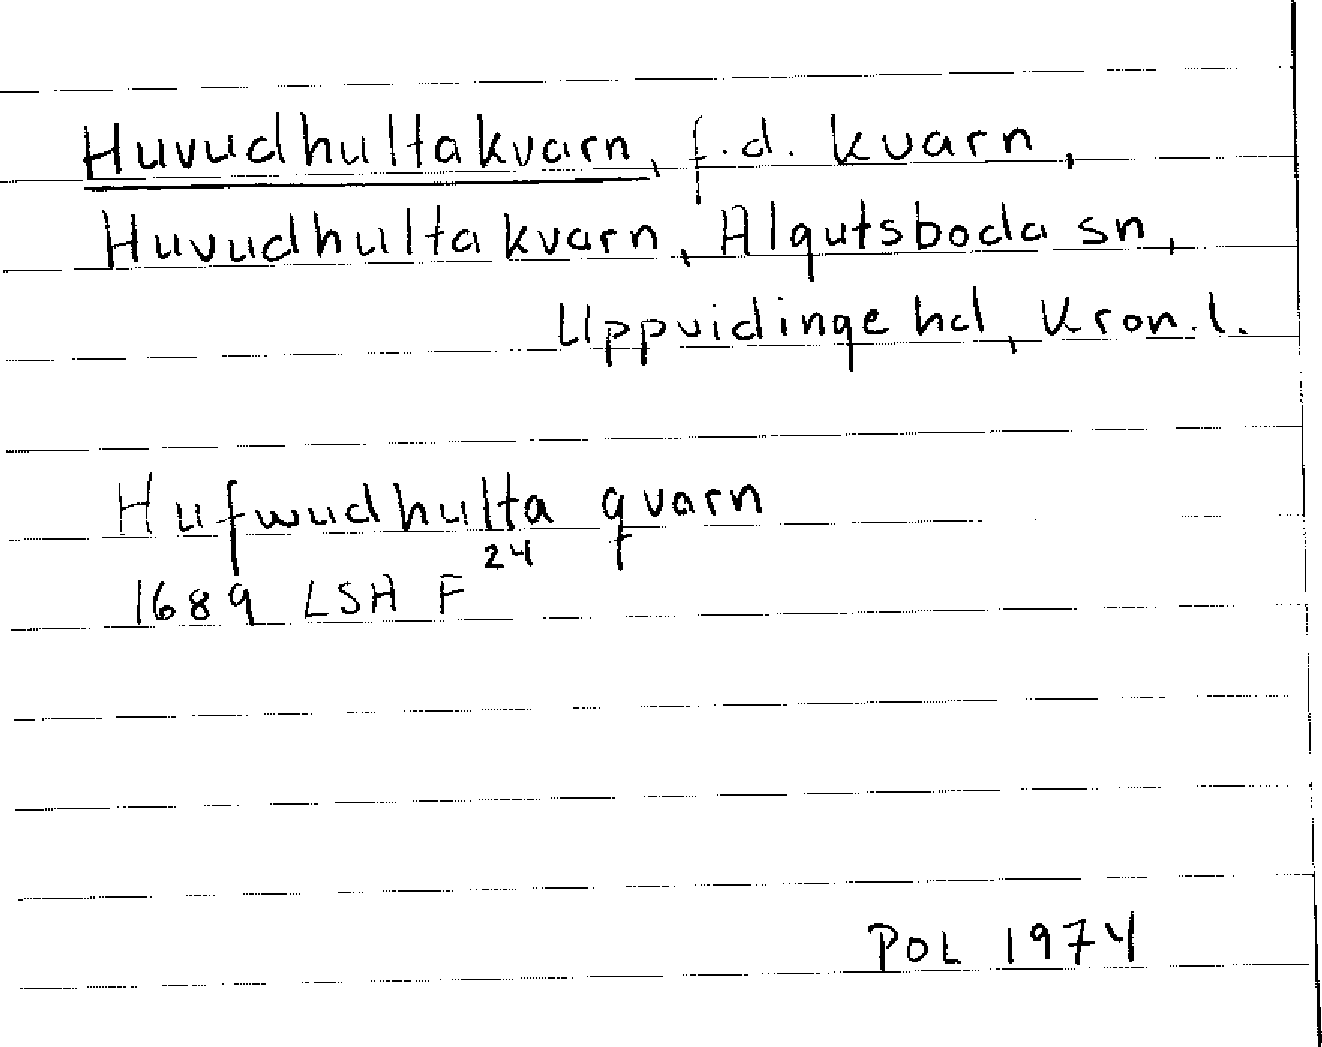 Huvudhultakvarn, f.d. kvarn,
Huvudhulta kvarn, Algutsboda sn,
Uppvidinge hd, Kron.l.
Hufwudhulta qvarn
1689 LSA F 24
POL 1974